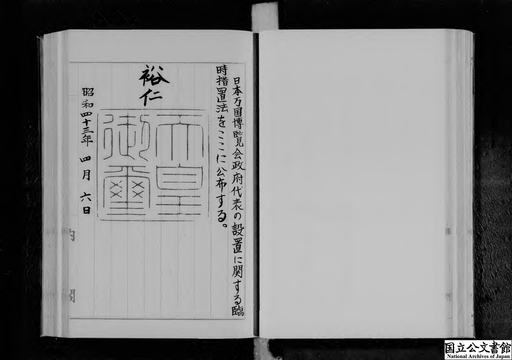 日本万国博覧会政府代表の設置に関する臨
時措置法をここに公布する。
裕仁
天皇
御璽
昭和四十三年 四月 六日
内閣
国立公文書館
National Archives of Japan